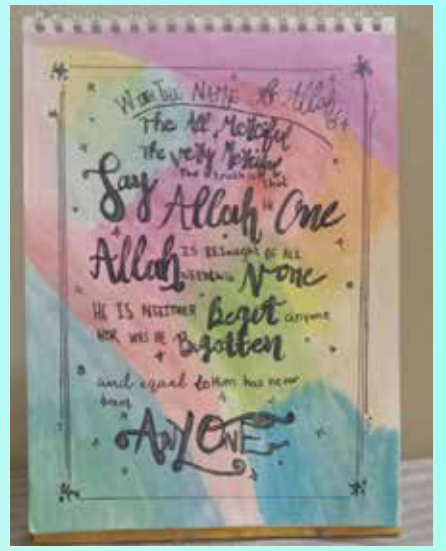 WITH THE NAME OF Allah
The All, Merciful
The very Merciful
Say The truth is that
Allah is One
Allah IS BESOUGHT OF ALL
NEEDING None
HE IS NEITHER Begot anyone
NOR WAS HE Begotten
and equal to Him has never
been
ANY ONE